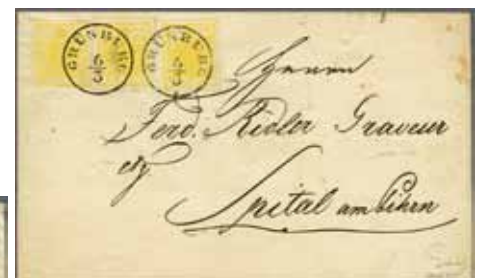 GRÜNBURG
6/3
GRÜNBURG
6/3
Herrn
Ferd. Ridler Graveur
Spital am Pihrn